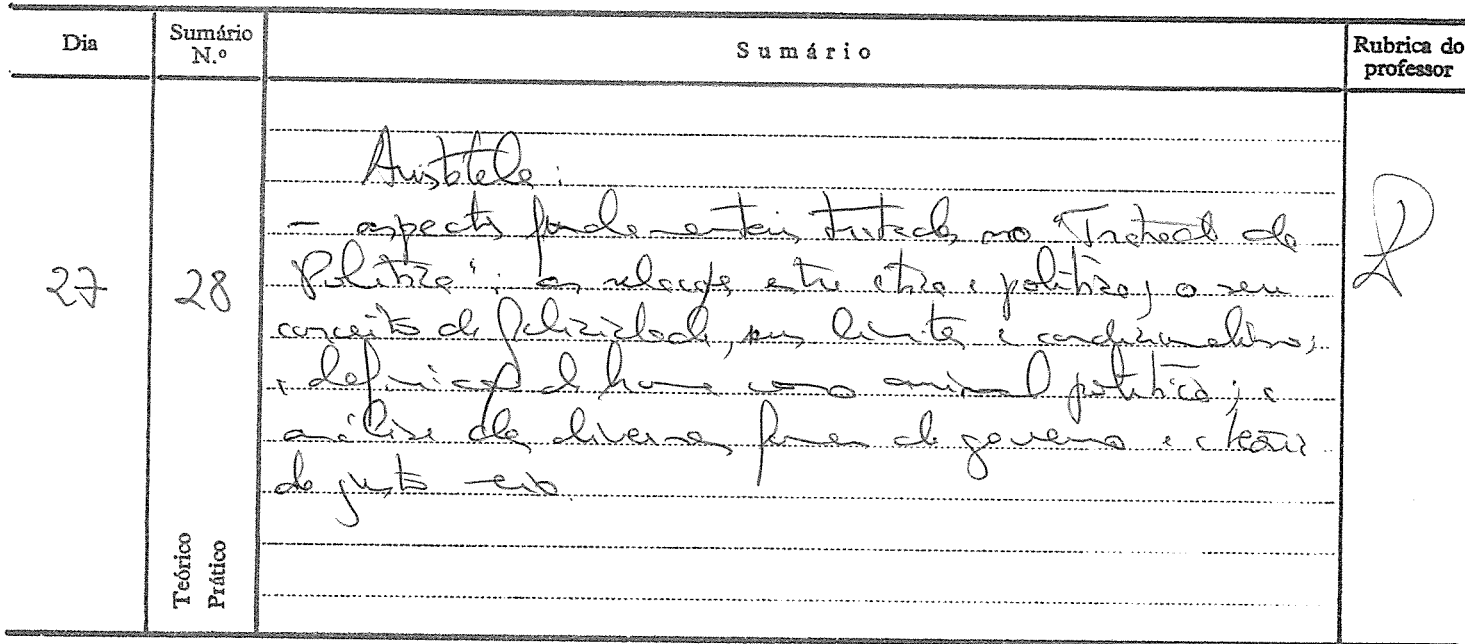 Dia
Sumário N.º
Sumário
Rubrica do professor
27
28
Aristóteles:
- aspectos fundamentais tratados no "Tratado da
Política": as relações entre ética e política; o seu
conceito de felicidade, seus limites e condicionalismos;
a definição do homem como animal político; a
análise das diversas formas de governo e a teoria
do justo meio.
Teórico
Prático